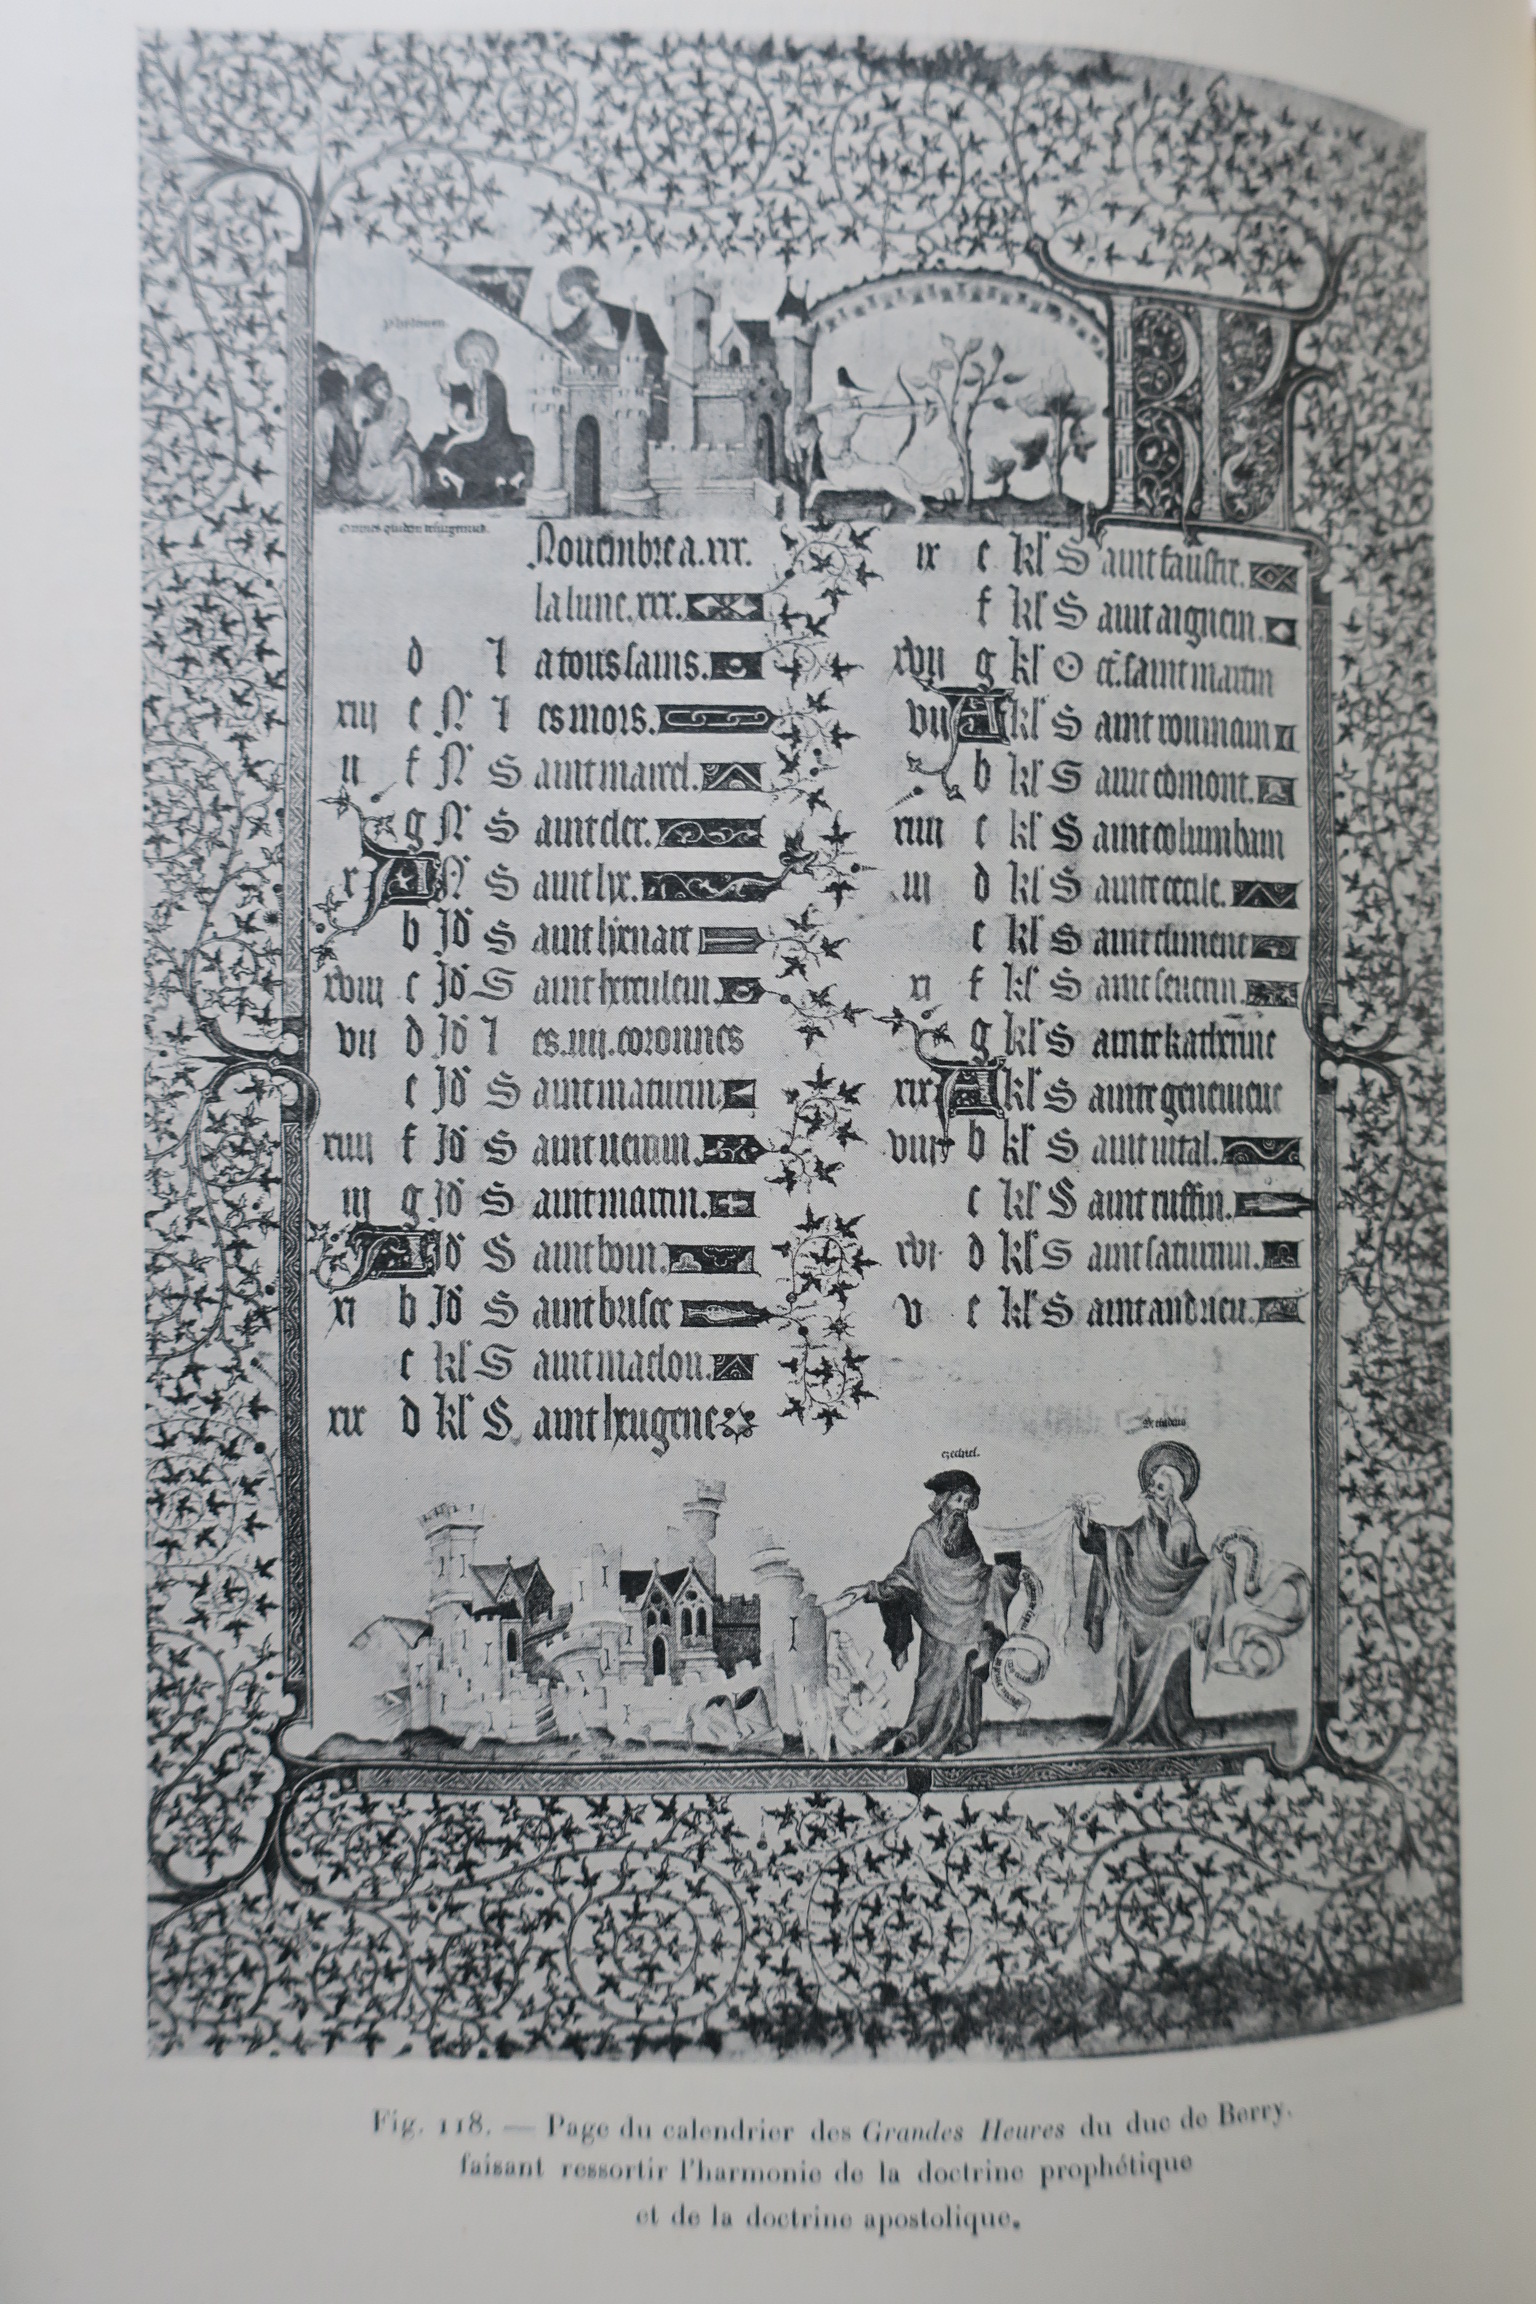 Nouembre a .xxx.
la lune .xxx.
d l a tous sains.
xiii e N l es mors.
ii f N S aint marcel.
g N S aint cler.
x A N S aint lie.
b Id S aint lienart
xviii c Id S aint herculein.
vii d Id l es .iiii. coronnes
e Id S aint maturin.
xiiii f Id S aint
iii g Id S aint martin.
A Id S aint
xi b Id S aint brisce
c kl S aint maclou.
xix d kl S aint heugene
ix e kl S aint faustre.
f kl S aint aignein.
xvii g kl O ct. saint martin
vii A kl S aint
b kl S aint edmont.
xiiii c kl S aint columbain
iii d kl S ainte cecile.
e kl S aint climent
xi f kl S aint seuerin.
g kl S ainte katherine
xix A kl S ainte geneuieue
viii b kl S aint vital.
c kl S aint ruffin.
xvi d kl S aint saturnin.
v e kl S aint andrieu.
ezechiel.
Fig. 118. — Page du calendrier des Grandes Heures du duc de Berry,
faisant ressortir l'harmonie de la doctrine prophétique
et de la doctrine apostolique.